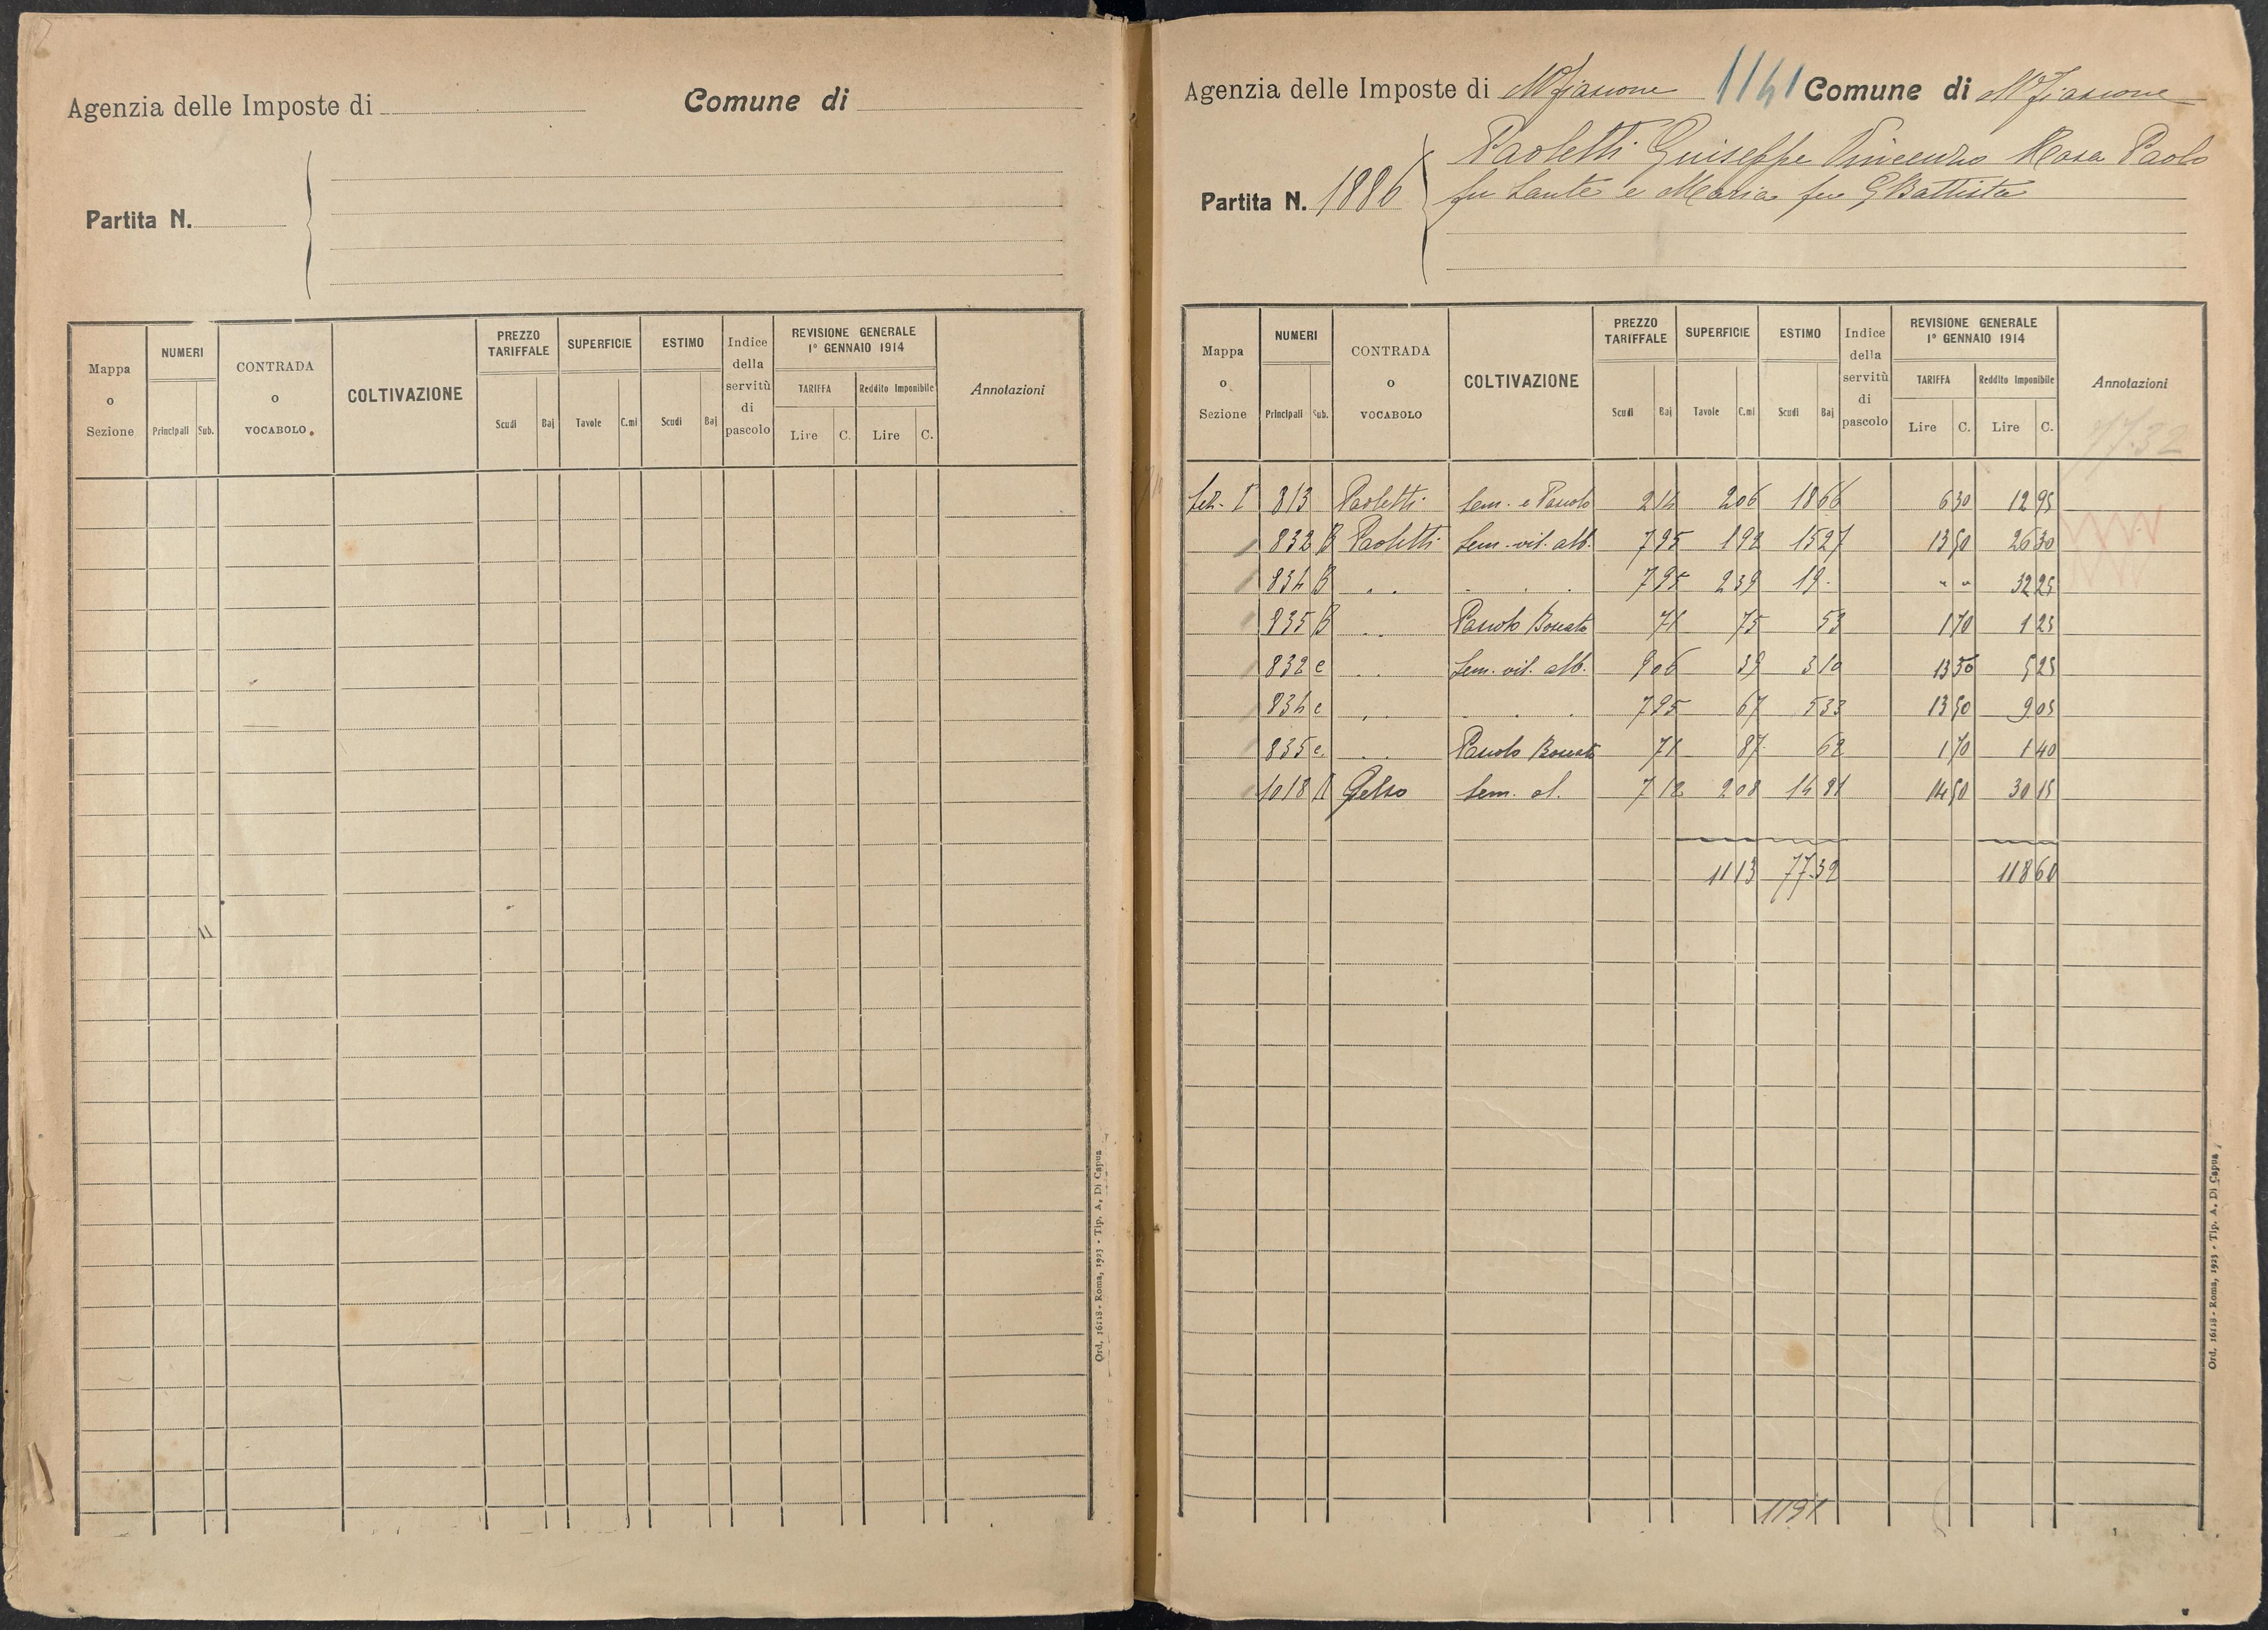 Agenzia delle Imposte di
Comune di
Partita N.
Mappa o Sezione
NUMERI
Principali Sub.
CONTRADA O VOCABOLO
COLTIVAZIONE
PREZZO TARIFFALE
Scudi Baj
SUPERFICIE
Tavole C.mi
ESTIMO
Scudi Baj
Indice della servitù di pascolo
REVISIONE GENERALE
1° GENNAIO 1914
TARIFFA
Lire C.
Reddito Imponibile
Lire C.
Annotazioni
Ord. 16118 - Roma, 1923 - Tip. A. Di Capua
Agenzia delle Imposte di Mfiascone 1141 Comune di Mfiascone
Partita N. 1886
Paoletti Guiseppe Vincenzo Rosa Paolo
fu Sante e Maria fu GBattista
Mappa o Sezione
NUMERI
Principali Sub.
CONTRADA O VOCABOLO
COLTIVAZIONE
PREZZO TARIFFALE
Scudi Baj
SUPERFICIE
Tavole C.mi
ESTIMO
Scudi Baj
Indice della servitù di pascolo
REVISIONE GENERALE
1° GENNAIO 1914
TARIFFA
Lire C.
Reddito Imponibile
Lire C.
Annotazioni
77.32
Sez. I 813 Paoletti Sem. e Pascolo 2 14 2 06 18 66 6 30 12 95
832 B Paoletti Sem. vit. alb. 7 95 1 92 15 27 13 50 26 30
834 B " " " 7 95 2 39 19 - " " 32 25
835 B " " Pascolo Boscato 71 75 53 1 70 1 25
832 c " " Sem. vit. alb. 9 06 39 3 10 13 50 5 25
834 c " " " 7 95 67 5 33 13 50 9 05
835 c " " Pascolo Boscato 71 87 62 1 70 1 40
1018 A Gelso Sem. ol. 7 12 2 08 14 81 14 50 30 15
11 13 77.32 118 60
1191
Ord. 16118 - Roma, 1923 - Tip. A. Di Capua